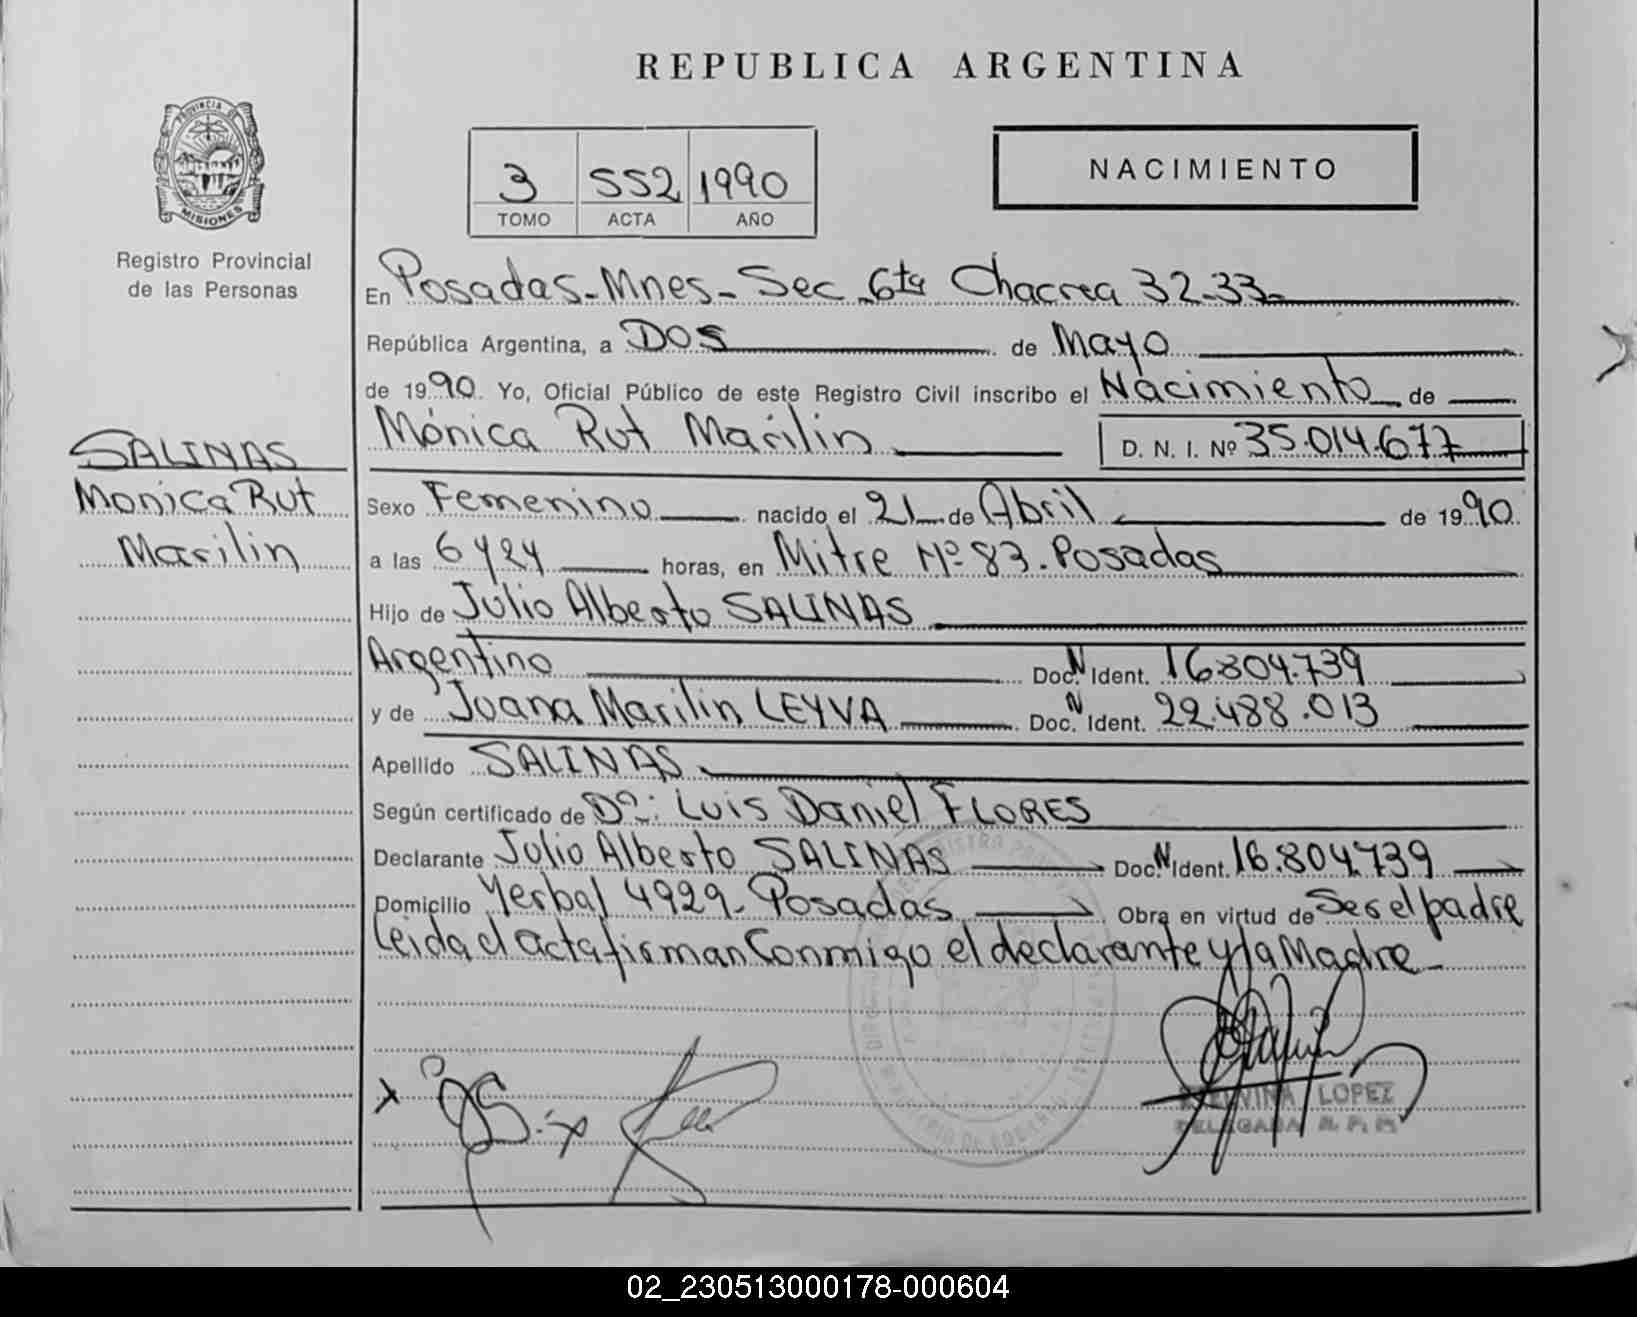 REPUBLICA ARGENTINA
PROVINCIA DE
MISIONES
Registro Provincial
de las Personas
3 552 1990
TOMO ACTA AÑO
NACIMIENTO
En Posadas-Mnes-Sec 6ta Chacra 32-33-
República Argentina, a DOS de Mayo
de 1990. Yo, Oficial Público de este Registro Civil inscribo el Nacimiento de
Mónica Rut Marilin D. N. I. Nº 35.014.677
SALINAS
Monica Rut
Marilin
Sexo Femenino nacido el 21 de Abril de 1990.
a las 6 y 24 horas, en Mitre Nº 83. Posadas
Hijo de Julio Alberto SALINAS
Argentino Doc. N Ident. 16.804.739
y de Juana Marilin LEYVA Doc. N Ident. 22.488.013
Apellido SALINAS
Según certificado de Dº: Luis Daniel FLORES
Declarante Julio Alberto SALINAS Doc. N Ident. 16.804.739
Domicilio Yerbal 4929- Posadas Obra en virtud de Ser el padre
Leida el acta firman Conmigo el declarante y la Madre-
LOPEZ
DELEGADA R. P. M
02_230513000178-000604